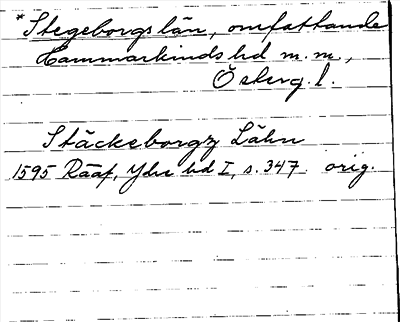 *Stegeborgs län, omfattande
Hammarkinds hd m.m.,
Österg. l.
Stäckeborgz Lähn
1595 Rääf, Ydre hd I, s. 347. orig.